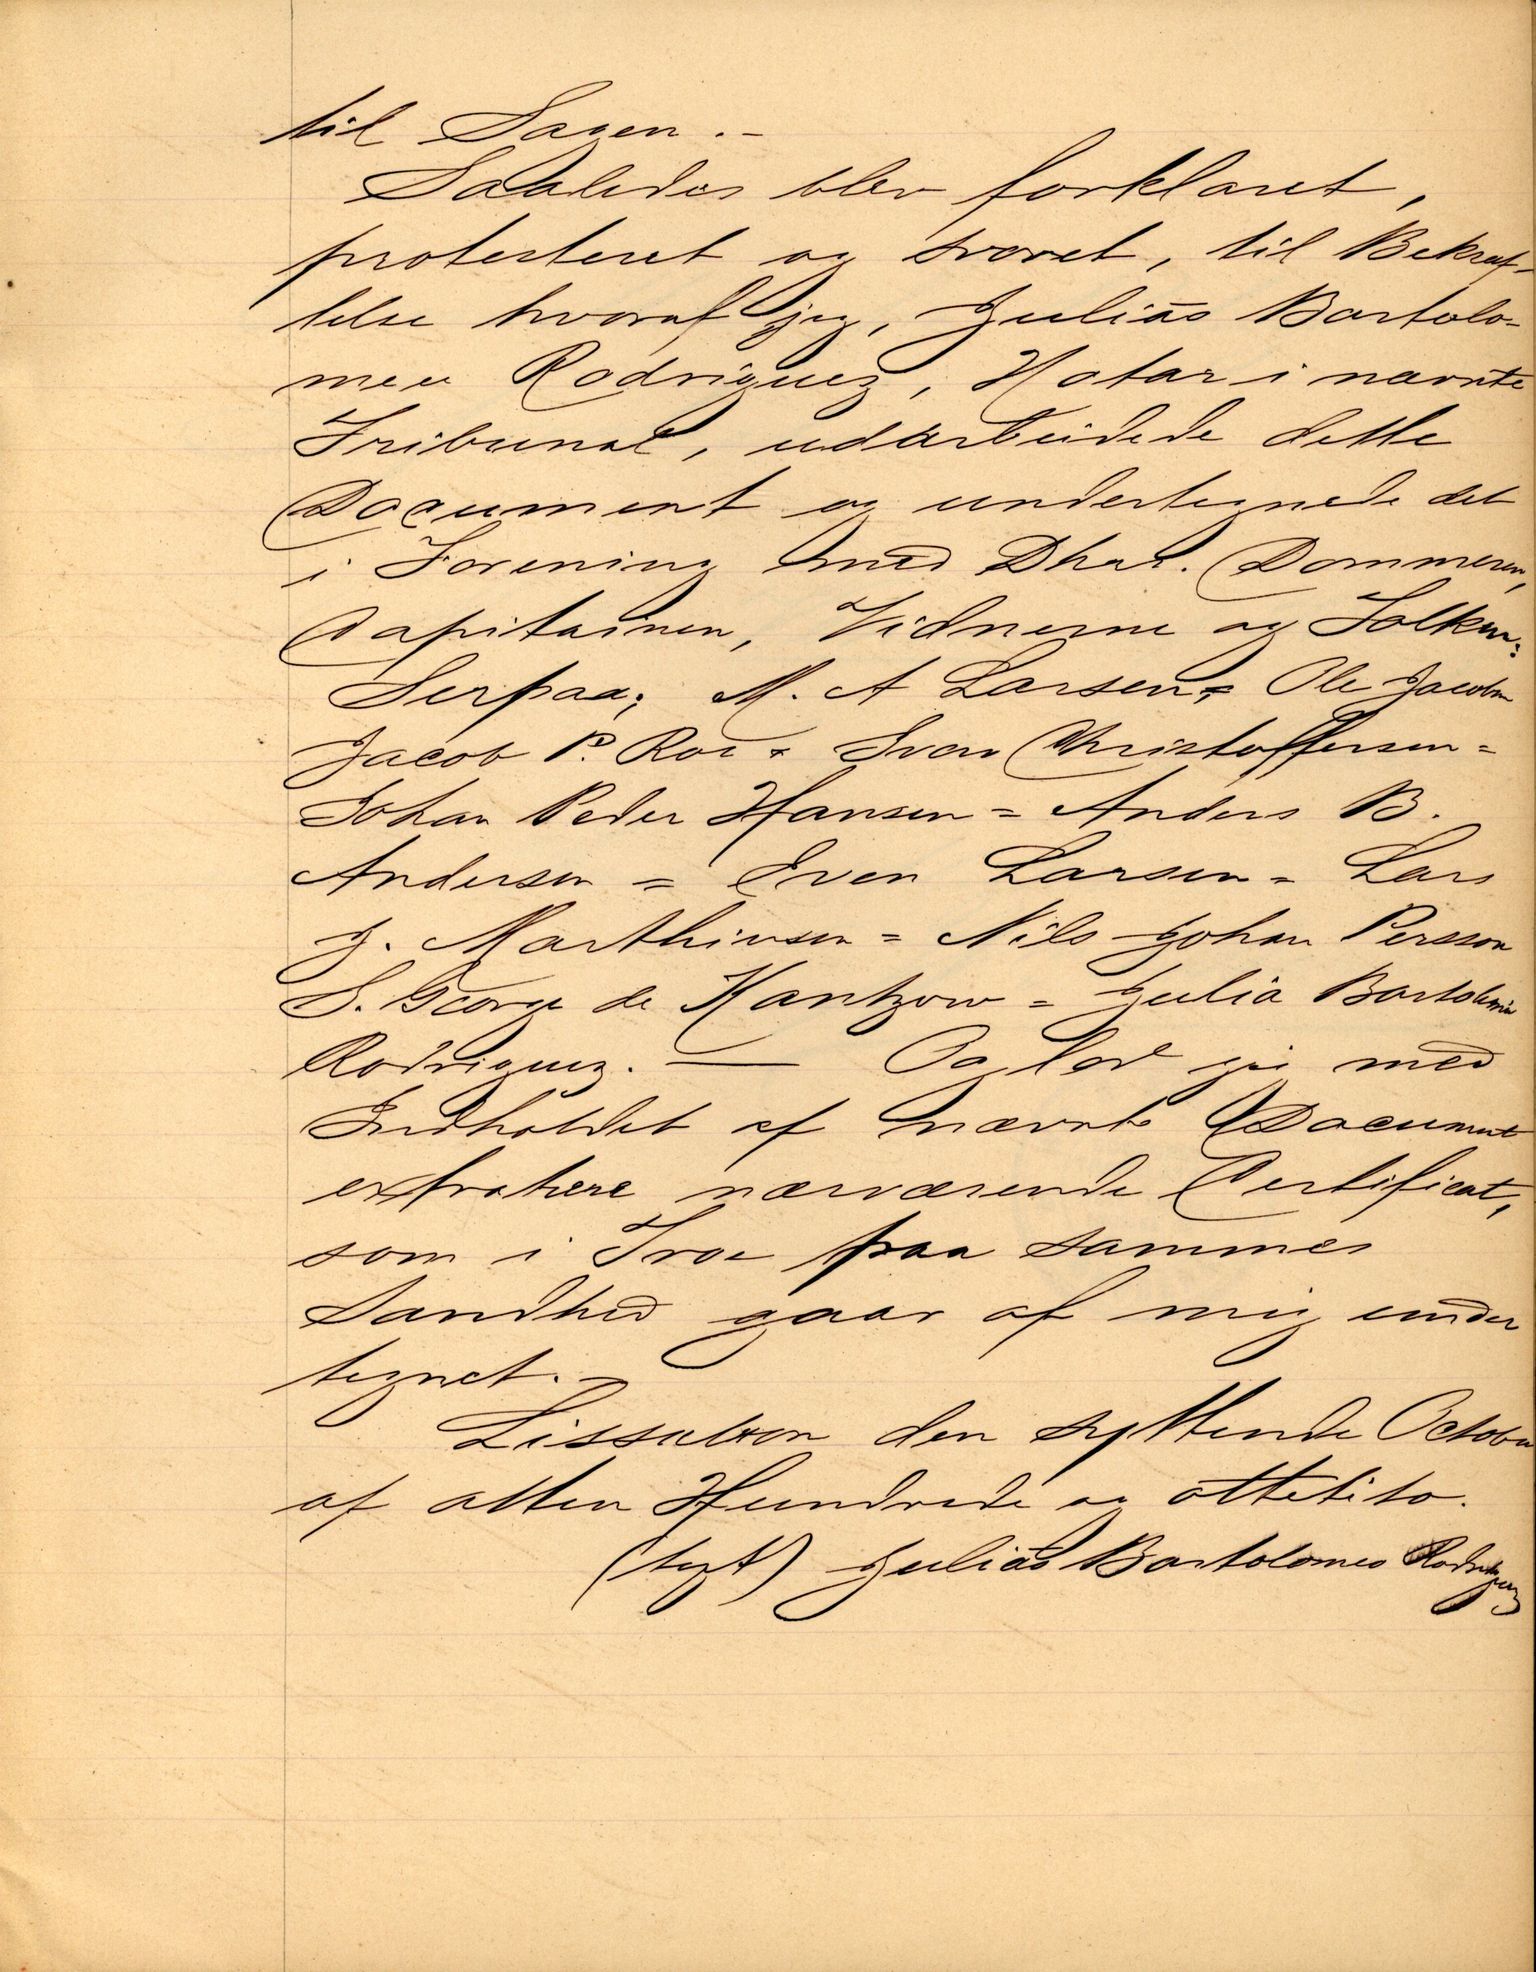 til Sagen. –
Saaledes blev forklaret,
protesteret og svoret, til Bekræf-
telse hvoraf jeg, Juliãs Bartolo-
meu Rodriguez, Notar i nævnte
Tribunal, udarbeidede dette
Document og undertegnede det
i Forening med Dhrr. Dommeren,
Capitainen, Vidnerne og Tolken:
Serpaa; M. A Larsen = Ole Jacobsen
Jacob P. Roe = Sven Christoffersen =
Johan Peder Hansen = Anders B.
Andersen = Even Larsen = Lars
J. Marthinsen = Nils Johan Persson
S. George de Kantzow = Julia Bartolomeu
Rodriguez. — Og lod jeg med
Indholdet af nævnte Document
extrahere nærværende Certificat,
som i Troe paa sammes
Sandhed gaar af mig under
tegnet. –
Lissabon den syttende October
af atten Hundrede og ottetito.
(tegt) Juliãs Bartolomeo Rodriguez